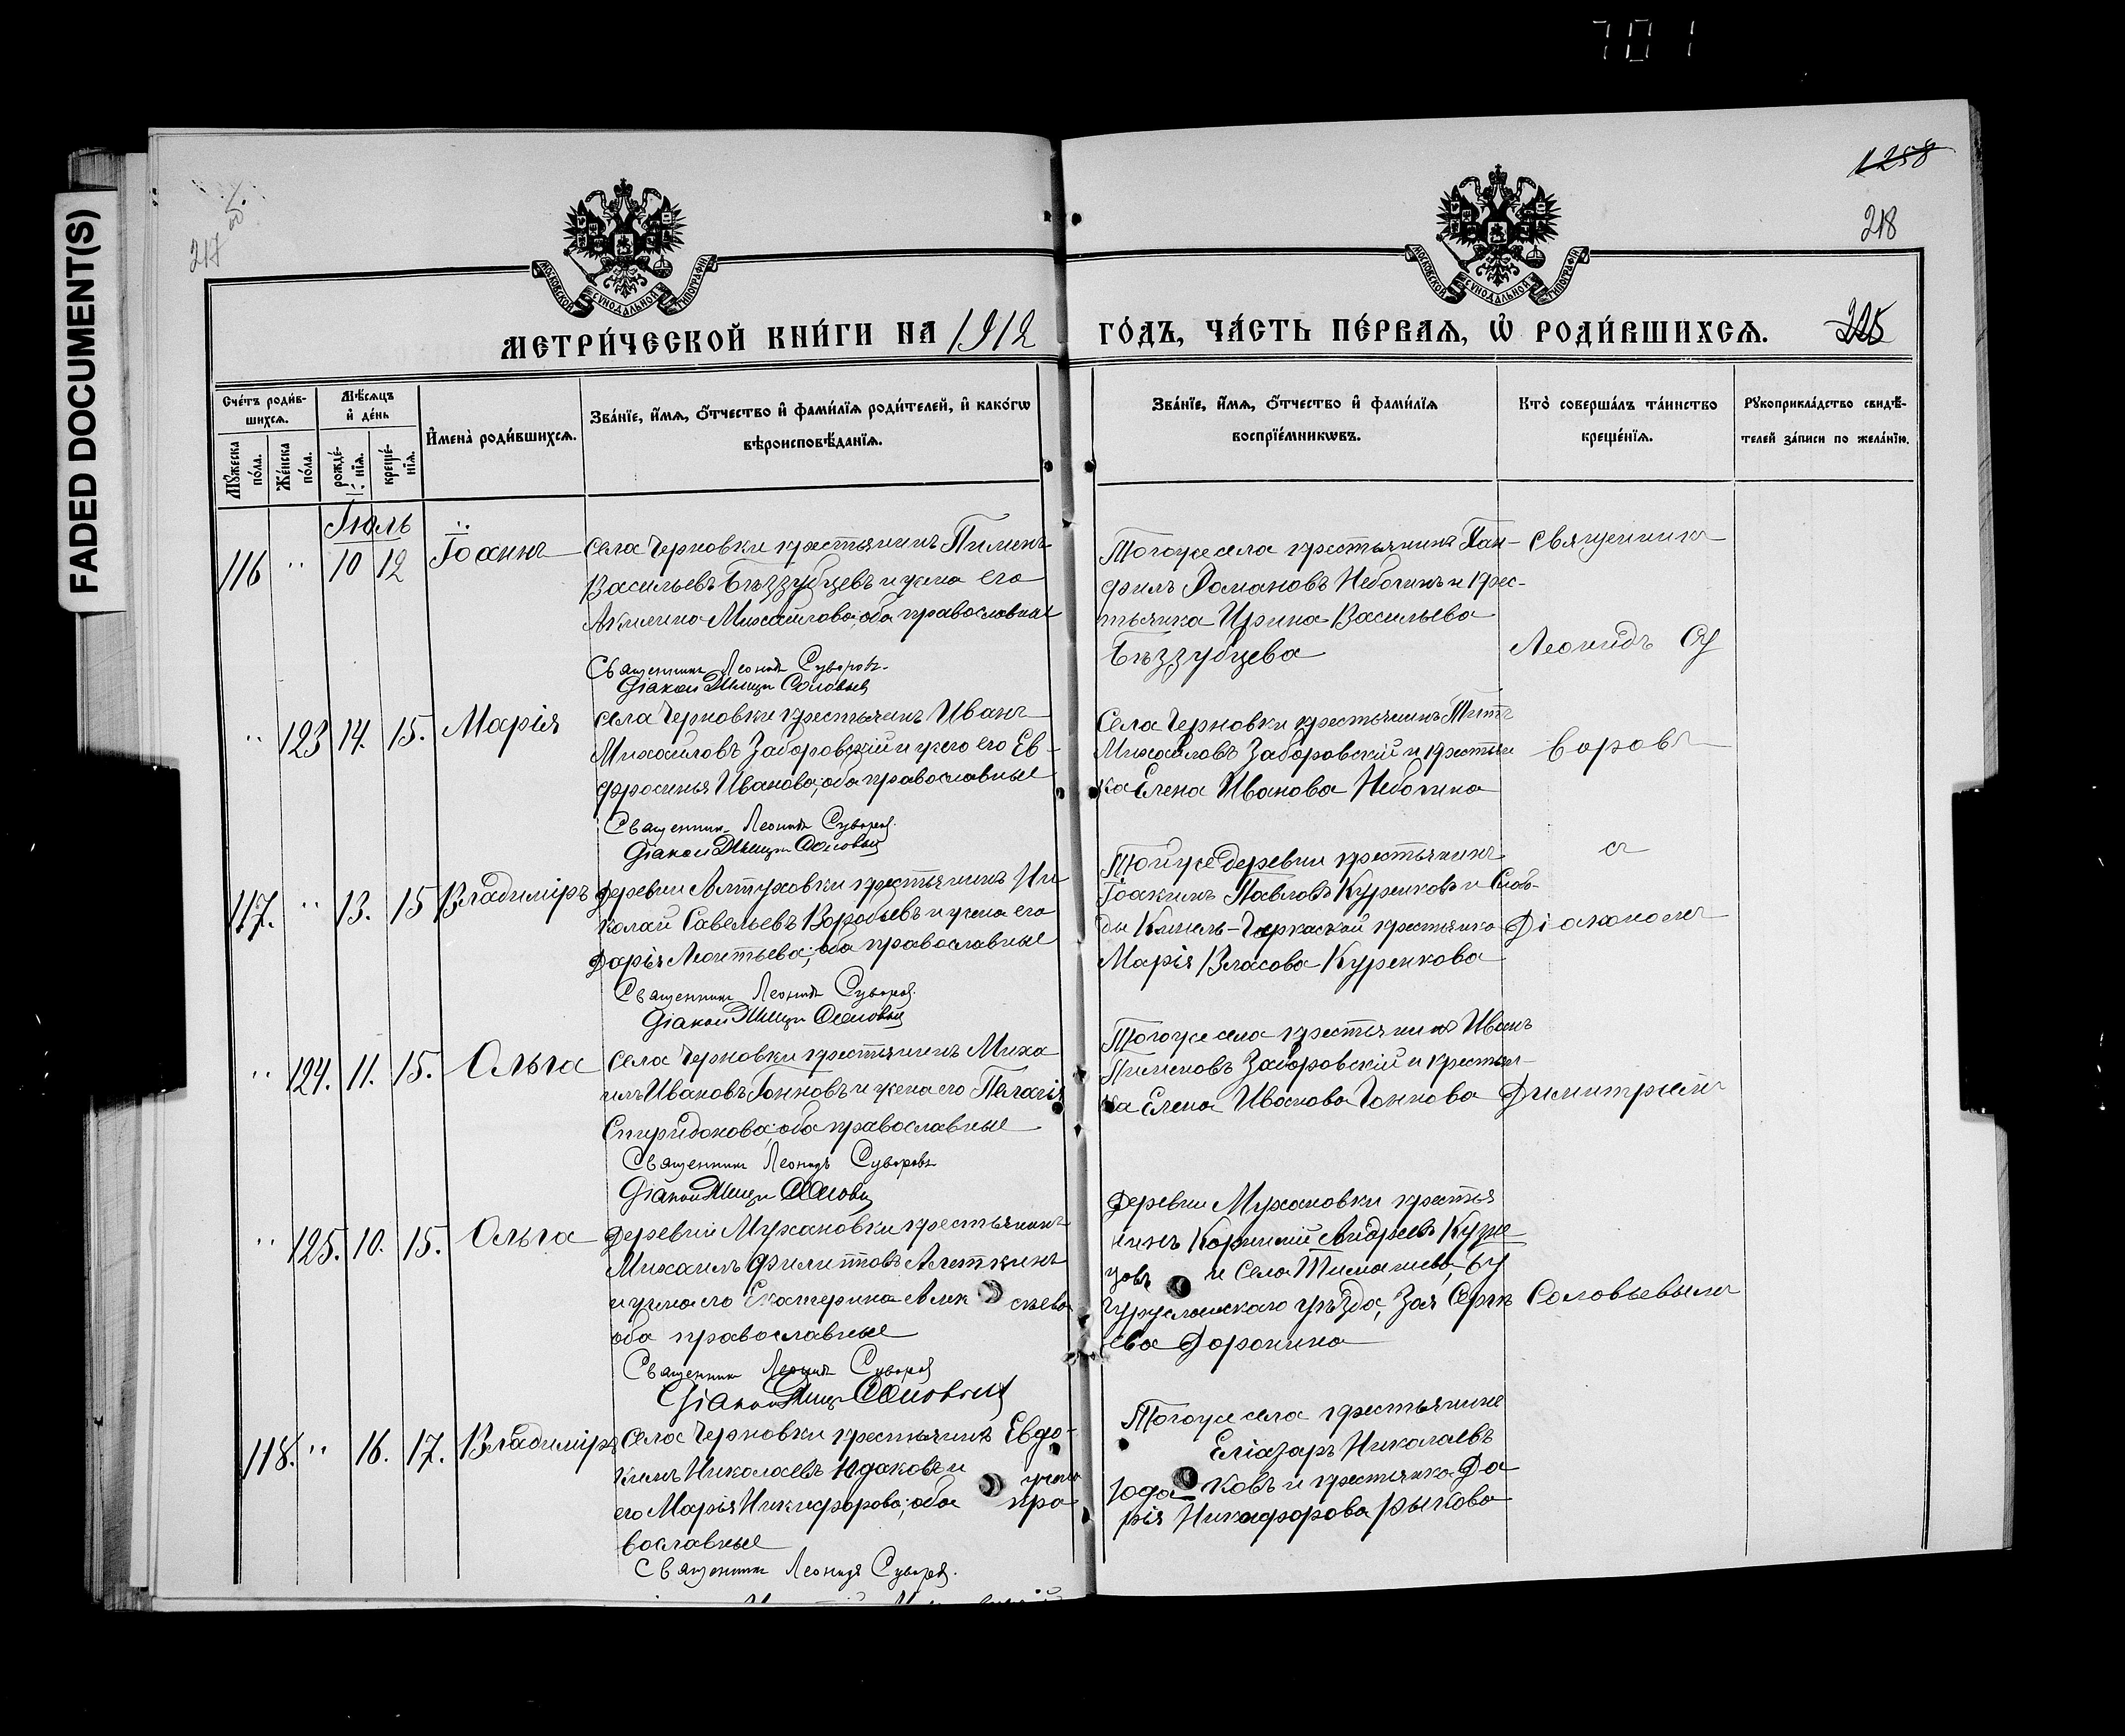 701
FADED DOCUMENT(S)
1258
217 об.
218
МОСКОВСКОЙ СѴНОДАЛЬНОЙ ТИПОГРАФІИ
МОСКОВСКОЙ СѴНОДАЛЬНОЙ ТИПОГРАФІИ
МЕТРИ́ЧЕСКОЙ КНИ́ГИ НА 1912 ГО́ДЪ, ЧА́СТЬ ПЕ́РВАѦ, Ѡ҆ РОДИ́ВШИХСѦ.
Сче́тъ роди́в-
шихсѧ.
Мꙋ́жеска по́ла.
Же́нска по́ла.
Мѣ́сѧцъ
и҆ де́нь
рожде́-
нїѧ.
креще́-
нїѧ.
И҆мена̀ роди́вшихсѧ.
Зва́нїе, и҆́мѧ, ѻ҆́тчество и҆ фами́лїѧ роди́телей, и҆ како́гѡ
вѣроисповѣ́данїѧ.
Зва́нїе, и҆́мѧ, ѻ҆́тчество и҆ фами́лїѧ
воспрїе́мникѡвъ.
Кто̀ соверша́лъ та́инство
креще́нїѧ.
Рꙋкоприкла́дство свидѣ́-
телей за́писи по жела́нїю.
Іюль
116 " 10 12 Іоаннъ
Села Черновки крестьянинъ Пименъ
Васильевъ Беззубцевъ и жена его
Акилина Михайлова; оба православные
Священникъ Леонидъ Суворовъ.
Діаконъ Димитрій Соловьевъ
Тогоже села крестьянинъ Пан-
филъ Романовъ Небогинъ и крес-
тьянка Ирина Васильева
Беззубцева
Священникъ
Леонидъ Су
" 123 14. 15. Марія
Села Черновки крестьянинъ Иванъ
Михаиловъ Заборовскій и жена его Ев-
фросинья Иванова; оба православные
Священникъ Леонидъ Суворовъ.
Діаконъ Димитрій Соловьевъ
Села Черновки крестьянинъ Титъ
Михаиловъ Заборовскій и крестьян
ка Елена Иванова Небогина
воровъ
съ
117. " 13. 15 Владиміръ
Деревни Алтуховки крестьянинъ Ни
колай Савельевъ Воробьевъ и жена его
Дарія Леонтьева; оба православные
Священникъ Леонидъ Суворовъ.
Діаконъ Димитрій Соловьевъ
Тойже деревни крестьянинъ
Іоакимъ Павловъ Куренковъ и Слобо-
ды Кинель-Черкаской крестьянка
Марія Власова Куренкова
Діакономъ
" 124. 11. 15. Ольга
Села Черновки крестьянинъ Миха
илъ Ивановъ Гонновъ и жена его Пелагія
Спиридонова; оба православные
Священникъ Леонидъ Суворовъ
Діаконъ Димитрій Соловьевъ
Тогоже села крестьянинъ Иванъ
Пименовъ Заборовскій и крестьян-
ка Елена Иванова Гоннова
Димитріемъ
" 125. 10. 15. Ольга
Деревни Мухановки крестьянинъ
Михаилъ Филипповъ Алеткинъ
и жена его Екатерина Алек сѣева
оба православные
Священникъ Леонидъ Суворовъ
Діаконъ Димитрій Соловьевъ
Деревни Мухановки крестья
нинъ Корнилій Андреевъ Кузне
цовъ и села Тимашева, Бу
гурусланскаго уѣзда, Зоя Серге
ева Доронина
Соловьевымъ
118. " 16. 17. Владиміръ
Села Черновки крестьянинъ Евдо-
кимъ Николаевъ Юдаковъ и жена
его Марія Никифорова; оба пра
вославные
Священникъ Леонидъ Суворовъ.
Тогоже села крестьянинъ
Еліазаръ Николаевъ
Юда ковъ и крестьянка Да
рія Никифорова Рыкова